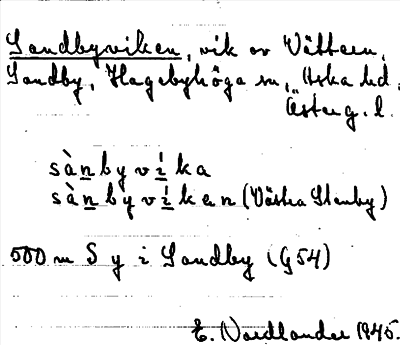 Sandbyviken, vik av Vättern,
Sandby, Hagebyhöga sn, Aska hd,
Österg. l.
sànbyvìka
sànbyvìken (Västra Stenby)
500 m S y i Sandby (G54)
E. Nordlander 1945.